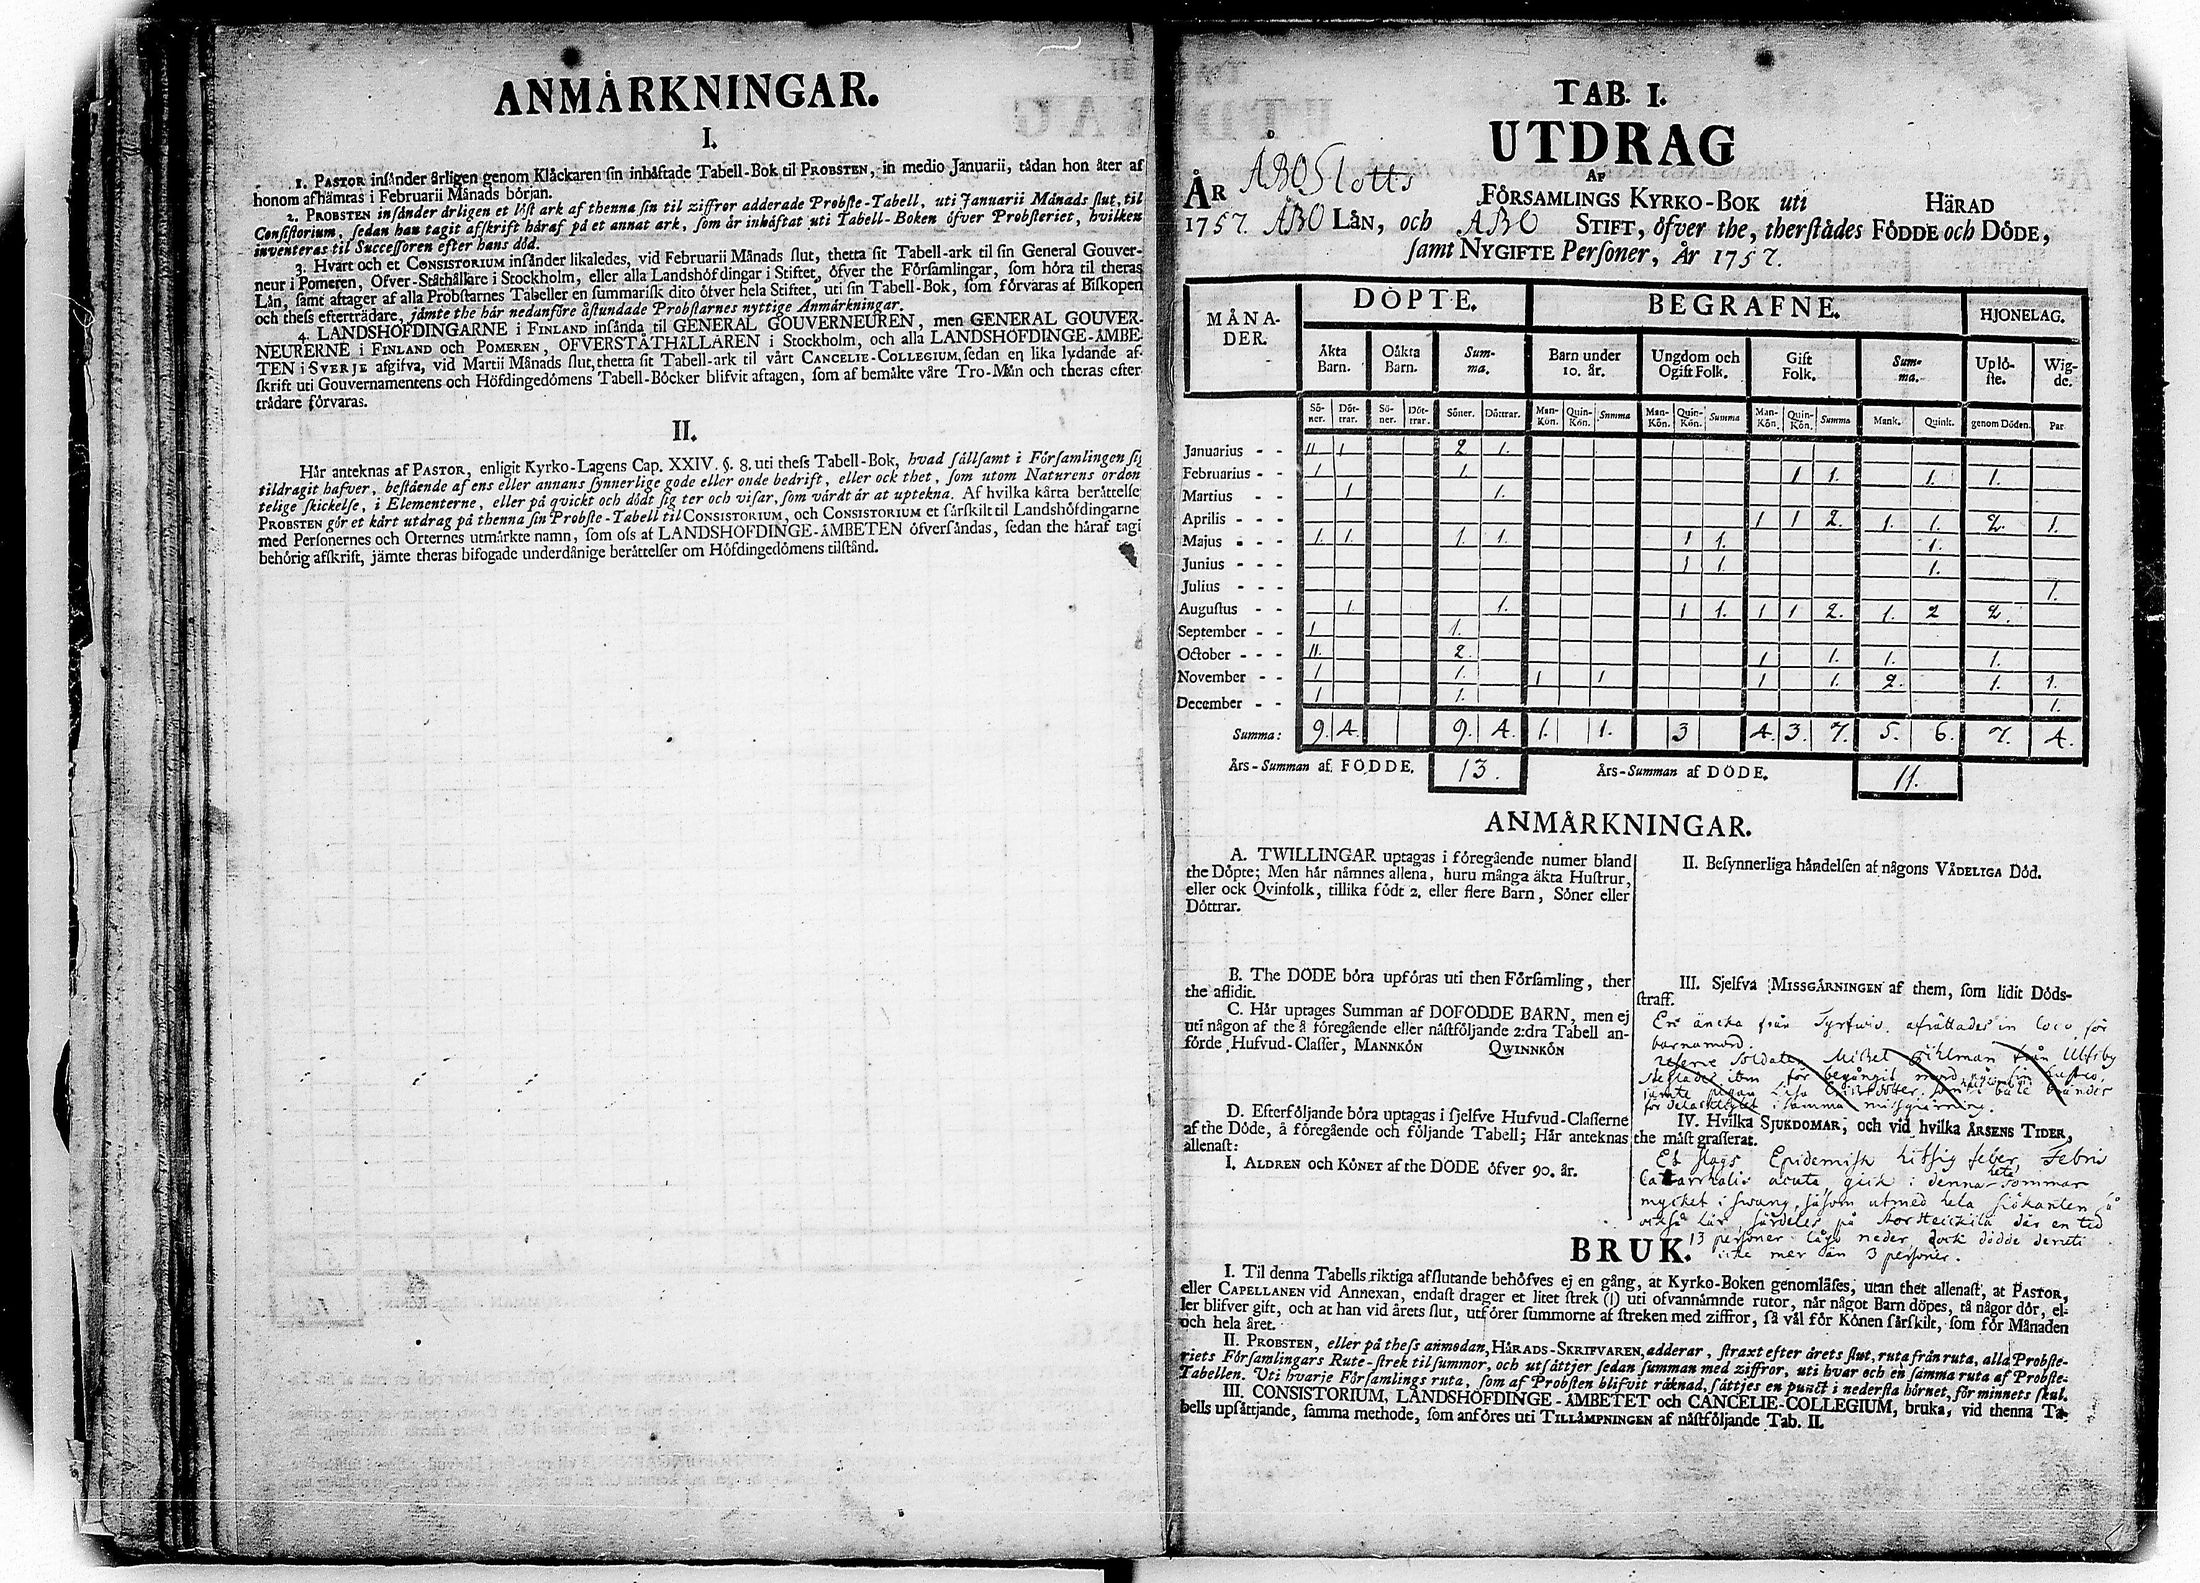 ANMÅRKNINGAR.
I.
1. PASTOR insånder årligen genom Klåckaren sin inhåftade Tabell-Bok til PROBSTEN, in medio Januarii, tådan hon åter af
honom afhåmtas i Februarii Månads början.
2. PROBSTEN insånder årligen et löst ark af thenna sin til ziffror adderade Probste-Tabell, uti Januarii Månads slut, til
Consistorium, sedan han tagit afskrift håraf på et annat ark, som år inhåftat uti Tabell-Boken öfver Probsteriet, hvilken
inventeras til Successoren efter hans död.
3. Hvart och et CONSISTORIUM insånder likaledes, vid Februarii Månads slut, thetta sit Tabell-ark til sin General Gouver-
neur i Pomeren, Öfver-Ståthållare i Stockholm, eller alla Landshöfdingar i Stiftet, öfver the Församlingar, som höra til theras
Lån, samt aftager af alla Probstarnes Tabeller en summarisk dito öfver hela Stiftet, uti sin Tabell-Bok, som förvaras af Biskopen
och thess efterträdare, jämte the hår nedanföre åstundade Probstarnes nyttige Anmårkningar.
4. LANDSHÖFDINGARNE i FINLAND insånda til GENERAL GOUVERNEUREN, men GENERAL GOUVER-
NEURERNE i FINLAND och POMEREN, ÖFVERSTÅTHÅLLAREN i Stockholm, och alla LANDSHÖFDINGE-ÅMBE-
TEN i SVERJE afgifva, vid Martii Månads slut, thetta sit Tabell-ark til vårt CANCELIE-COLLEGIUM, sedan en lika lydande af-
skrift uti Gouvernamentens och Höfdingedömens Tabell-Böcker blifvit aftagen, som af bemålte våre Tro-Mån och theras efter-
trådare förvaras.
II.
Hår anteknas af PASTOR, enligit Kyrko-Lagens Cap. XXIV. §. 8. uti thess Tabell-Bok, hvad sållsamt i Församlingen sig
tildragit hafver, bestående af ens eller annans synnerlige gode eller onde bedrift, eller ock thet, som utom Naturens orden
telige skickelse, i Elementerne, eller på qvickt och dödt sig ter och visar, som vårdt år at uptekna. Af hvilka kårta beråttelse
PROBSTEN gör et kårt utdrag på thenna sin Probste-Tabell til CONSISTORIUM, och CONSISTORIUM et sårskilt til Landshöfdingarne
med Personernes och Orternes utmårkte namn, som oss af LANDSHÖFDINGE-ÅMBETEN öfversåndas, sedan the håraf tagi
behörig afskrift, jämte theras bifogade underdånige beråttelser om Höfdingedömens tilstånd.
TAB. I.
UTDRAG
AF
ÅR ÅBO Slotts FÖRSAMLINGS KYRKO-BOK uti HÄRAD
1757. ÅBO LÅN, och ABO STIFT, öfver the, therstådes FÖDDE och DÖDE,
samt NYGIFTE Personer, År 1757.
MÅNA-DER. DÖPTE. BEGRAFNE. HJONELAG.
Äkta Barn. Oåkta Barn. Sum-ma. Barn under 10. år. Ungdom och Ogift Folk. Gift Folk. Sum-ma. Uplö-ste. Wig-de.
Sö-ner. Döt-trar. Sö-ner. Döt-trar. Söner. Döttrar. Man-Kön. Quin-Kön. Summa Man-Kön. Quin-Kön. Summa Man-Kön. Quin-Kön. Summa Mank. Quink. genom Döden. Par
Januarius - - II 1 2 1.
Februarius - - 1 1. 1 1. 1. 1.
Martius - - 1 1.
Aprilis - - - 1 1 2. 1. 1. 2. 1.
Majus - - - 1 1 1. 1. 1 1. 1.
Junius - - - 1 1. 1.
Julius - - - 1.
Augustus - - 1. 1. 1 1. 1 1 2. 1. 2 2.
September - - 1 1.
October - - - II. 2. 1 1. 1. 1.
November - - 1 1. 1 1 1 1. 2. 1. 1.
December - - 1 1. 1.
Summa: 9. 4. 9. 4. 1. 1. 3 4. 3. 7. 5. 6. 7. 4.
Års-Summan af FÖDDE. 13. Års-Summan af DÖDE. 11.
ANMÅRKNINGAR.
A. TWILLINGAR uptagas i föregående numer bland
the Döpte; Men hår nåmnes allena, huru många äkta Hustrur,
eller ock Qvinfolk, tillika födt 2. eller flere Barn, Söner eller
Döttrar.
B. The DÖDE böra upföras uti then Församling, ther
the aflidit.
C. Hår uptages Summan af DÖFÖDDE BARN, men ej
uti någon af the å föregående eller nåstföljande 2:dra Tabell an-
förde Hufvud-Classer, MANNKÖN QWINNKÖN
D. Efterföljande böra uptagas i sjelfve Hufvud-Classerne
af the Döde, å föregående och följande Tabell; Hår anteknas
allenast:
I. ÅLDREN och KÖNET af the DÖDE öfver 90. år.
II. Besynnerliga håndelsen af någons VÅDELIGA Död.
III. Sjelfva MISSGÅRNINGEN af them, som lidit Döds-
straff.
En äncka från afrättades in loco för
barnamord.
Soldaten Mickel från
för begångit mord
jämte pigan Lisa
i samma missgiärning.
IV. Hvilka SJUKDOMAR, och vid hvilka ÅRSENS TIDER,
the måst grasserat.
Et slags Epidemisk hitsig feber, Febris
Catarrhalis acuta, gick i denna heta Sommar
mycket i swang, såsom utmed hela siökanten så
också här, särdeles på där en tid
13 personer lågo neder, dock dödde deruti
icke mer än 3 personer.
BRUK.
I. Til denna Tabells riktiga afslutande behöfves ej en gång, at Kyrko-Boken genomläses, utan thet allenast, at PASTOR,
eller CAPELLANEN vid Annexan, endast drager et litet strek (|) uti ofvannåmnde rutor, når något Barn döpes, tå någor dör, el-
ler blifver gift, och at han vid årets slut, utförer summorne af streken med ziffror, så vål för Könen sårskilt, som för Månaden
och hela året.
II. PROBSTEN, eller på thess anmodan, HÅRADS-SKRIFVAREN, adderar, straxt efter årets slut, ruta från ruta, alla Probste-
riets Församlingars Rute-strek til summor, och utsåttjer sedan summan med ziffror, uti hvar och en samma ruta af Probste-
Tabellen. Uti hvarje Församlings ruta, som af Probsten blifvit råknad, såttjes en punct i nedersta hörnet, för minnets skul.
III. CONSISTORIUM, LANDSHÖFDINGE-ÅMBETET och CANCELIE-COLLEGIUM, bruka, vid thenna Ta-
bells upsåttjande, samma methode, som anföres uti TILLÅMPNINGEN af nåstföljande Tab. II.